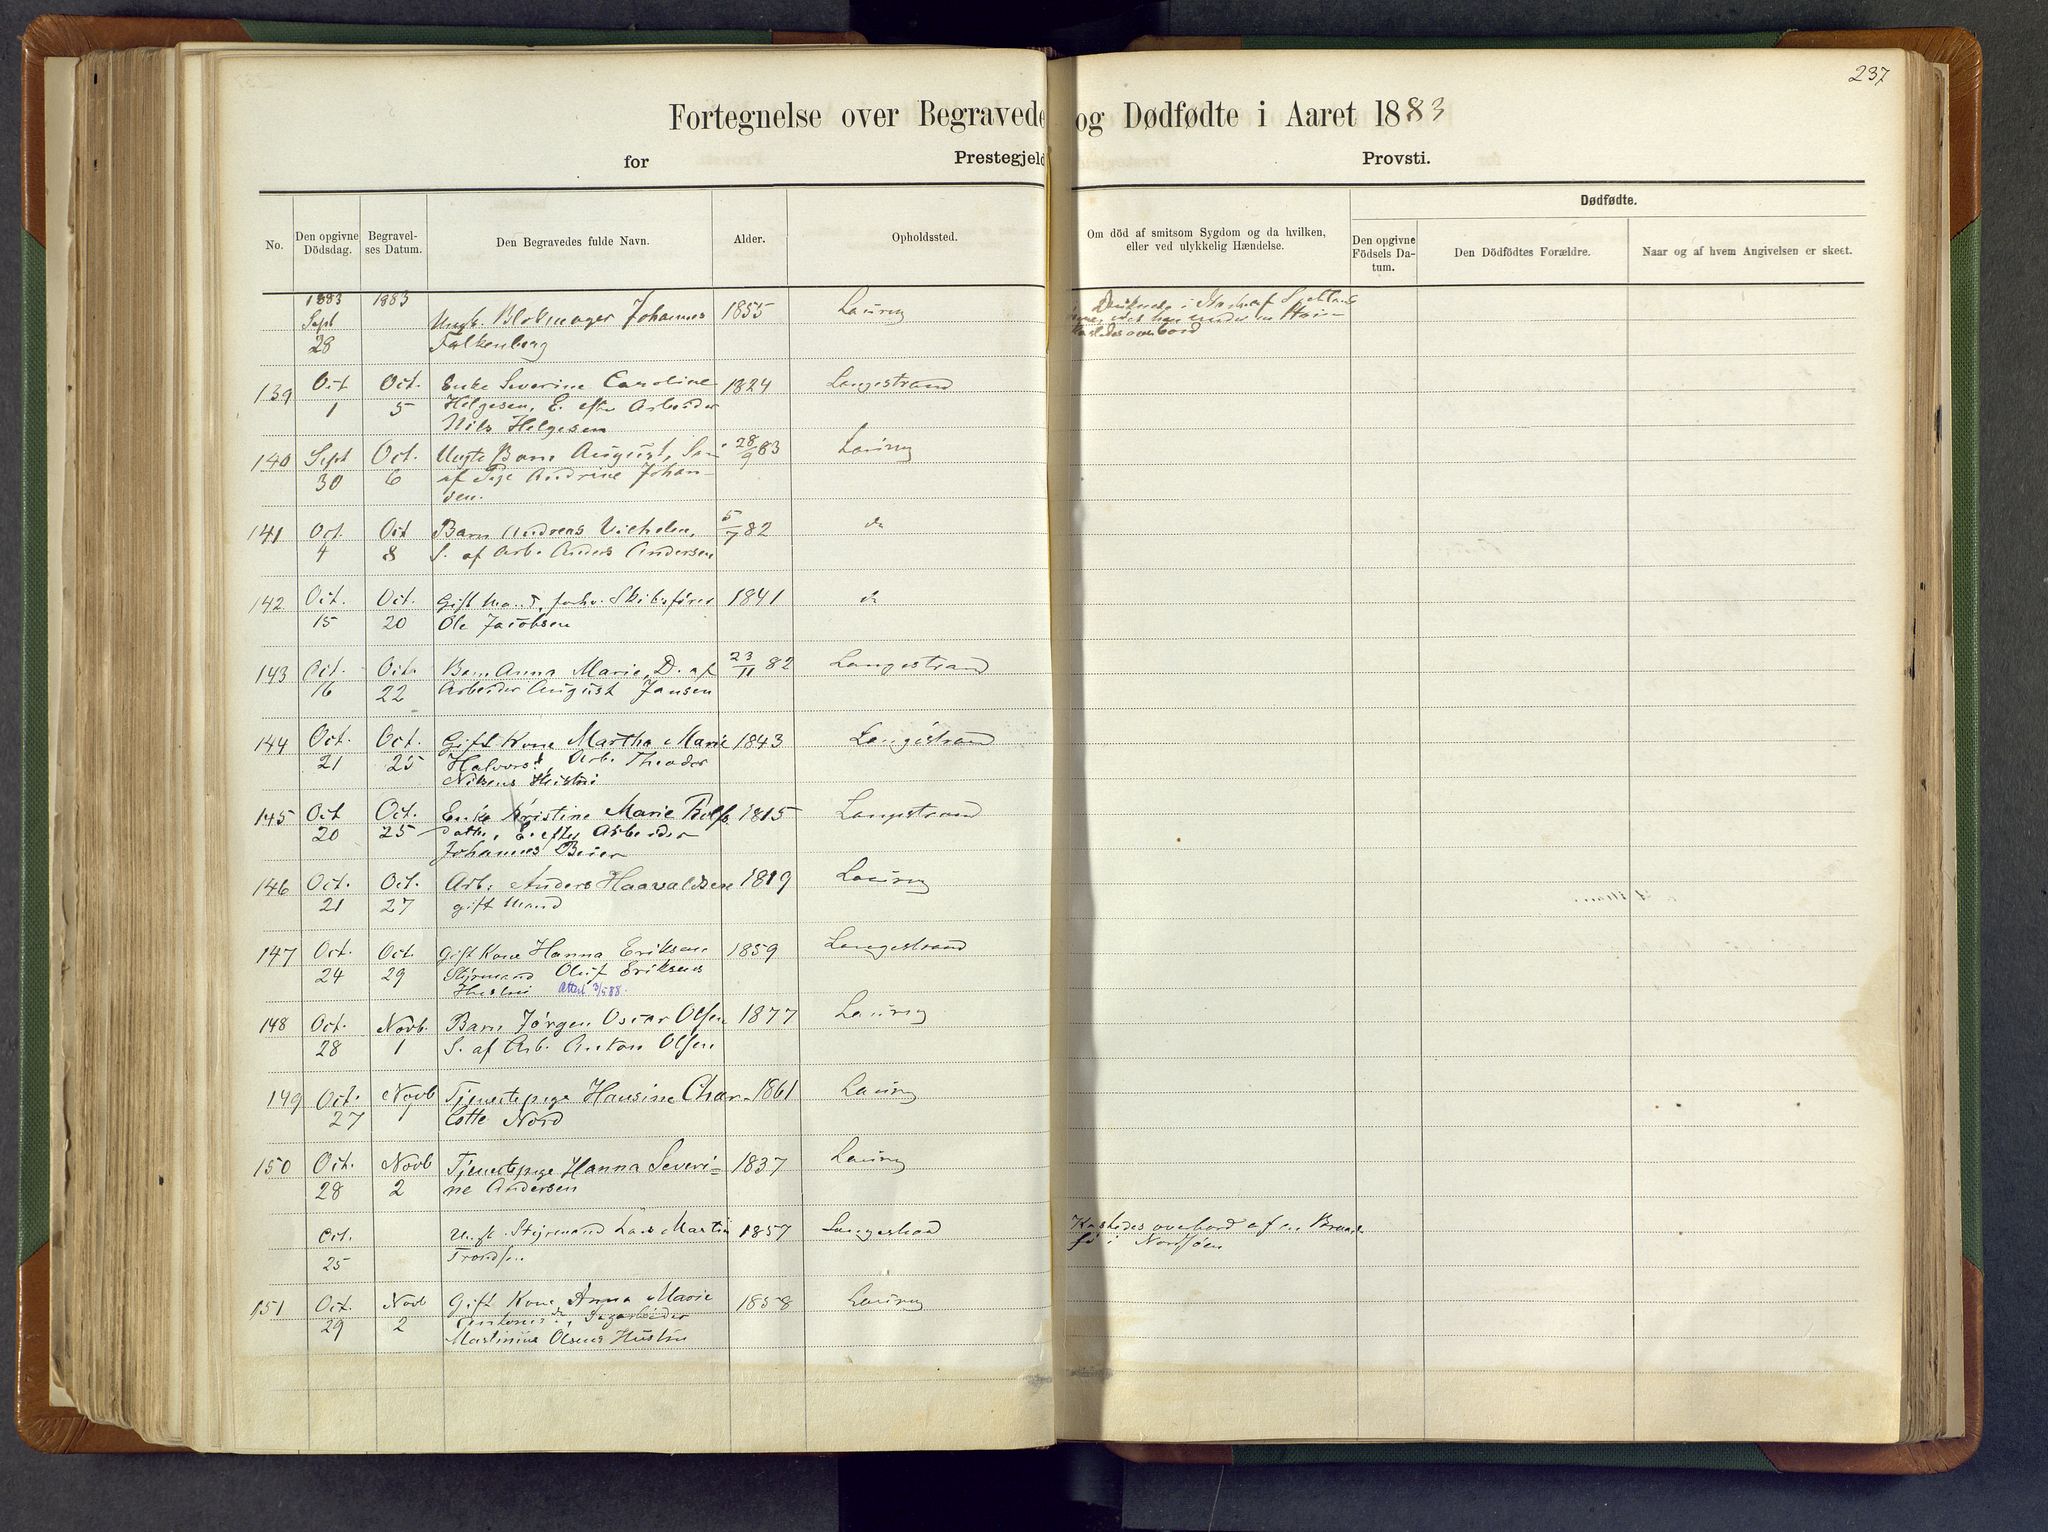 237
Fortegnelse over Begravede og Dødfødte i Aaret 1883
for Prestegjeld Provsti.
No.
Den opgivne Dödsdag.
Begravelses Datum.
Den Begravedes fulde Navn.
Alder.
Opholdssted.
Om död af smitsom Sygdom og da hvilken,
eller ved ulykkelig Hændelse.
Dødfødte.
Den opgivne Födsels Datum.
Den Dödfödtes Forældre.
Naar og af hvem Angivelsen er skeet.
1883 1883
Sept Ungk. Johannes 1855 Laurvig
28 Falkenberg
overbord
139 Oct Oct. Enke Severine Caroline 1824 Langestrand
1 5 Helgesen, E. efter Arbeider
Nils Helgesen
140 Sept Oct. Uægte Barn August, Sön 28/9 83 Laurvig
30 6 af Pige Andrine Johan-
sen.
141 Oct. Oct Barn Andreas Vilhelm, 5/7 82 do
4 8 S. af Arb. Anders Andersen
142 Oct. Oct. Gift Mand, Skibsfører 1841 do
15 20 Ole Jacobsen
143 Oct. Oct. Barn Anna Marie, D. af 23/11 82 Langestrand
16 22 Arbeider August Jansen
144 Oct. Oct. Gift Kone Martha Marie 1843 Langestrand
21 25 Halvorsd., Arb. Theodor
Nilsens Hustru
145 Oct Oct. Enke Kristine Marie Rolfs 1815 Langestrand
20 25 datter, E. efter Arbeider
Johannes Beier
146 Oct. Oct. Arb. Anders Haavaldsen 1819 Laurvig
21 27 gift Mand
147 Oct. Oct. Gift Kone Hanna Eriksen 1859 Langestrand
24 29 Styrmand Oluf Eriksens
Hustru Attest 3/5 88.
148 Oct. Novb. Barn Jørgen Oscar Olsen 1877 Laurvig
28 1 S. af Arb. Anton Olsen
149 Oct. Novb Tjenestepige Hansine Char- 1861 Laurvig
27 1 lotte Nord
150 Oct. Novb Tjenestepige Hanna Severi- 1837 Laurvig
28 2 ne Andersen
Oct. Ungk. Styrmand Lars Martin 1857 Langestrand Kastedes overbord af en
25 Trondsen i Nordsøen
151 Oct. Novb Gift Kone Anna Marie 1858 Laurvig
29 2
Martinius Olsens Hustru